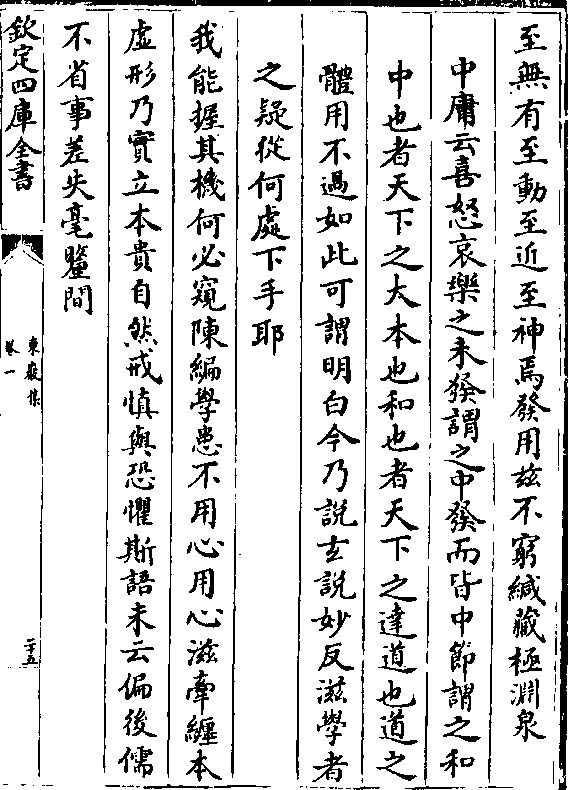 至無有至動至近至神焉發用玆不窮緘藏極淵泉
中庸云喜怒哀樂之未發謂之中發而皆中節謂之和
中也者天下之大本也和也者天下之達道也道之
體用不過如此可謂明白今乃説𤣥説妙反滋學者
之疑從何處下手耶
我能握其機何必窺陳編學患不用心用心滋牽纏本
虛形乃實立本貴自然戒慎與恐懼斯語未云偏後儒
不省事差失毫釐間
欽定四庫全書
東巖集
卷一
二十五